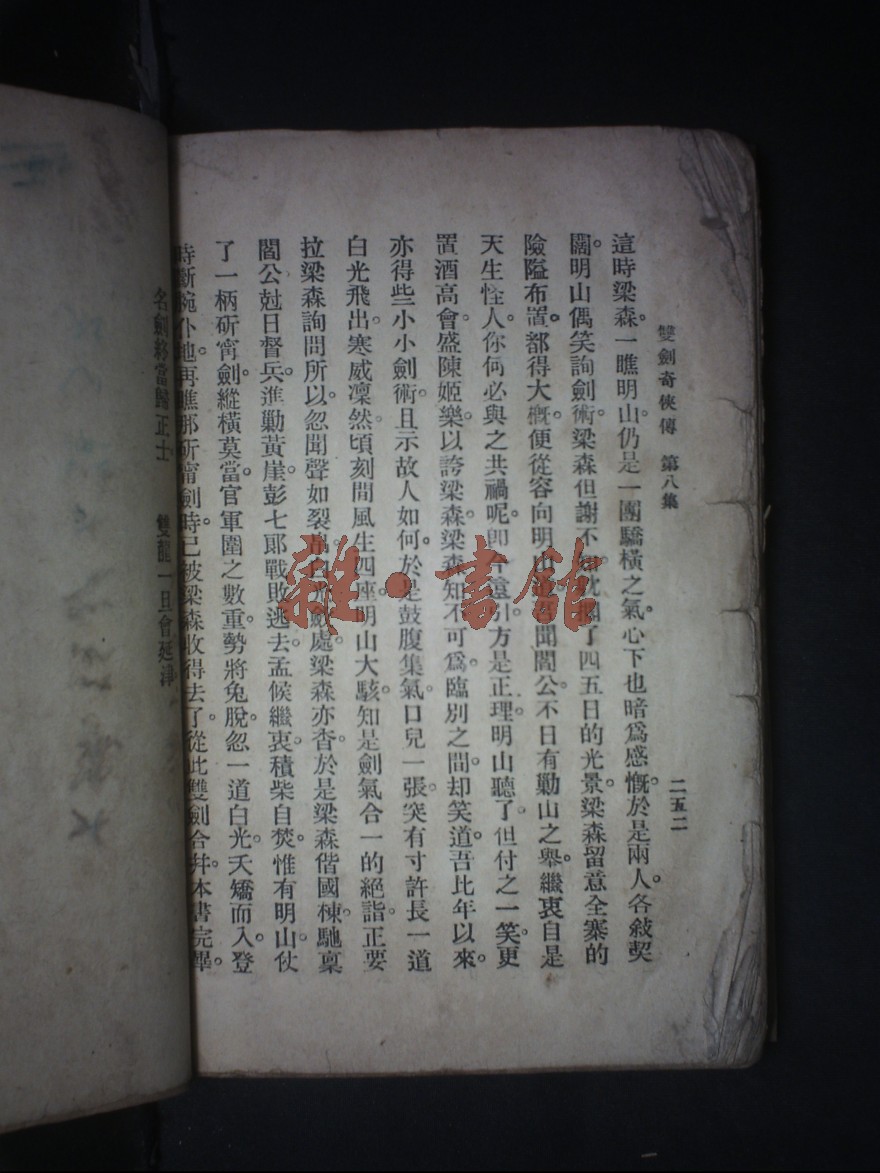 雙劍奇俠傳　第八集
二五二
這時梁森一瞧明山仍是一團驕橫之氣。心下也暗爲感慨。於是兩人。各敍契
闊。明山偶笑詢劍術。梁森但謝不 四五日的光景。梁森留意全寨的
險隘布置。都得大概。便從容向明山 聞閻公。不日有勦山之舉。繼衷自是
天生怪人。你何必與之共禍呢。 遠引。方是正理。明山聽了。但付之一笑。更
置酒高會。盛陳姬樂。以誇梁森。梁森知不可爲。臨別之間。却笑道。吾比年以來。
亦得些小小劍術。且示故人如何。於是鼓腹集氣。口兒一張。突有寸許長一道
白光飛出。寒威凜然。頃刻間風生四座。明山大駭。知是劍氣合一的絕詣。正要
拉梁森詢問所以。忽聞聲如裂帛。白光斂處。梁森亦杳。於是梁森偕國棟。馳稟
閻公。尅日督兵。進勦黃崖。彭七郞戰敗逃去。孟候繼衷。積柴自焚。惟有明山仗
了一柄斫霄劍。縱橫莫當。官軍圍之數重。勢將兔脫。忽一道白光。夭矯而入。登
時斷椀仆地。再瞧那斫霄劍時。已被梁森收得去了。從此雙劍合幷。本書完畢。
名劍終當歸正士　雙龍一旦會延津
雜·書館